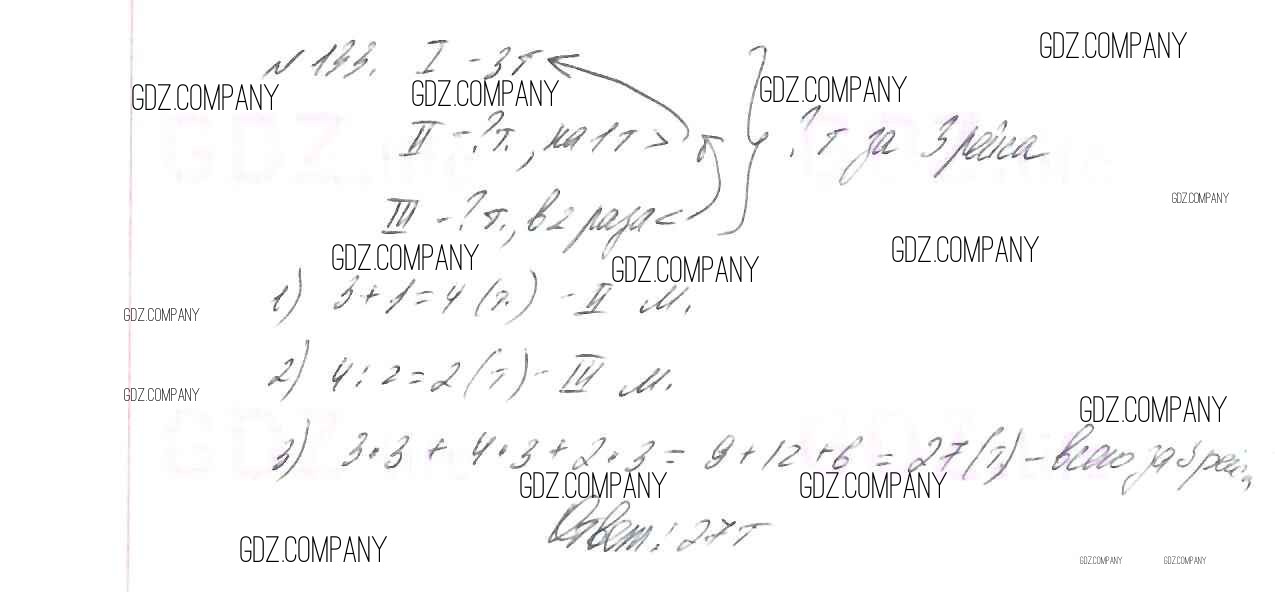 № 133. I - 3 т
GDZ.COMPANY
GDZ.COMPANY GDZ.COMPANY GDZ.COMPANY
II - ? т., на 1 т > ? т за 3 рейса
GDZ.COMPANY
III - ? т., в 2 раза <
GDZ.COMPANY GDZ.COMPANY GDZ.COMPANY
1) 3 + 1 = 4 (т.) - II м.
GDZ.COMPANY
2) 4 : 2 = 2 (т) - III м.
GDZ.COMPANY
GDZ.COMPANY
3) 3 · 3 + 4 · 3 + 2 · 3 = 9 + 12 + 6 = 27 (т.) - всего за 3 рейса
GDZ.COMPANY GDZ.COMPANY
Ответ: 27 т
GDZ.COMPANY
GDZ.COMPANY GDZ.COMPANY